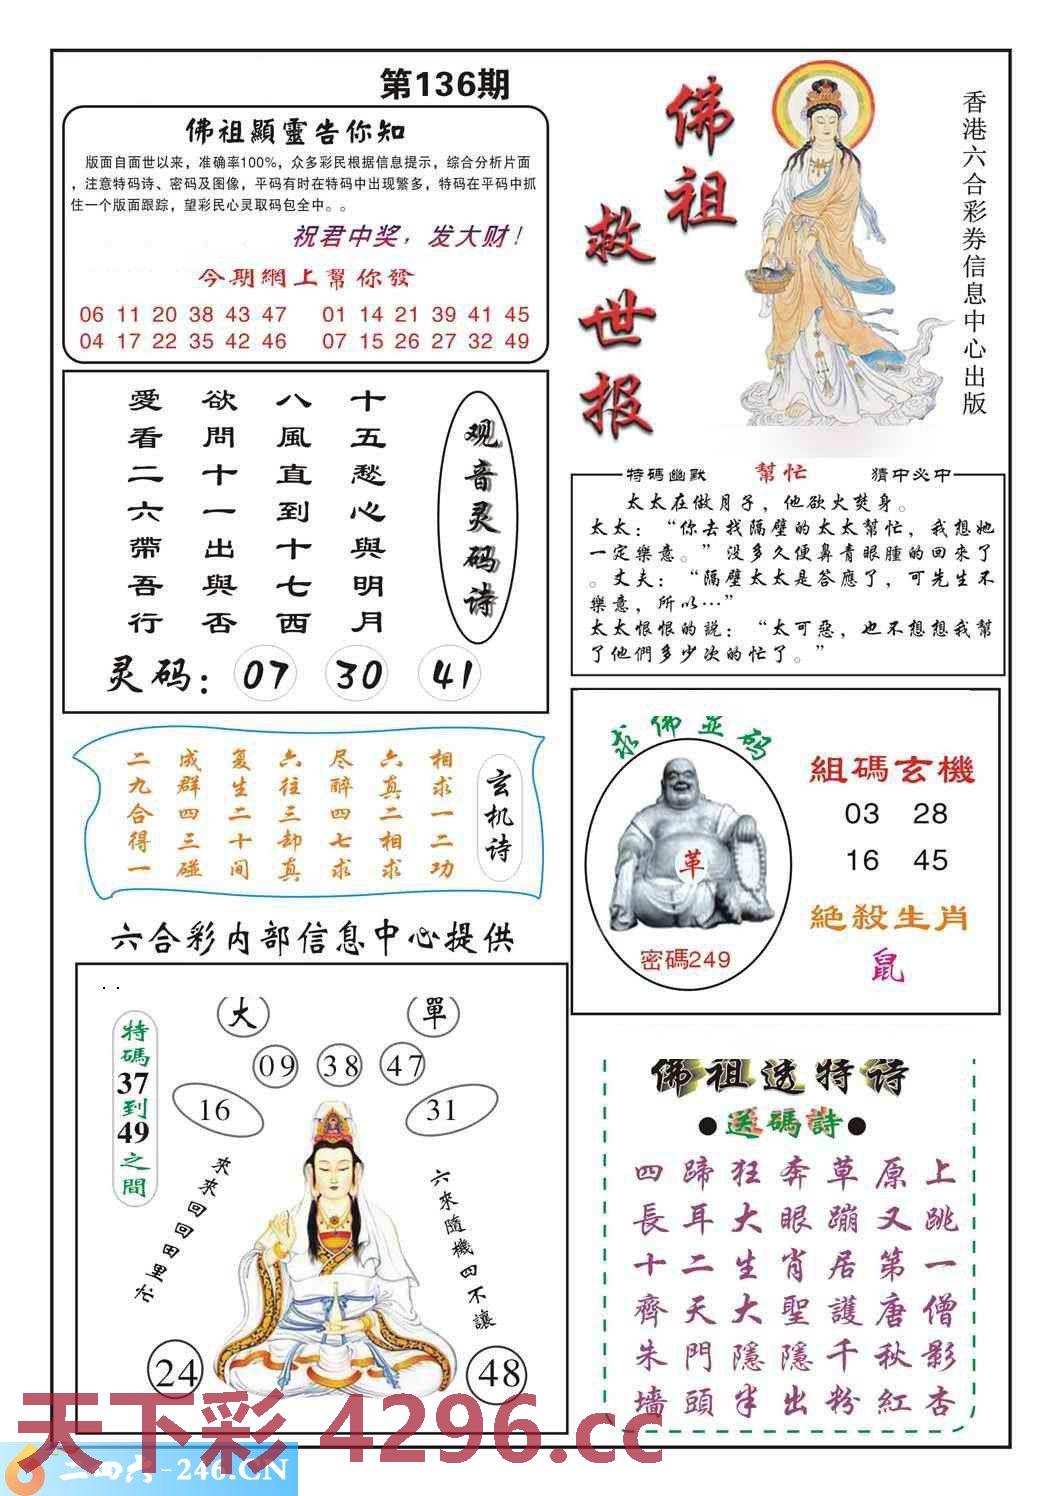 第136期
佛祖顯靈告你知
版面自面世以来，准确率100%，众多彩民根据信息提示，综合分析片面
，注意特码诗、密码及图像，平码有时在特码中出现繁多，特码在平码中抓
住一个版面跟踪，望彩民心灵取码包全中。。
祝君中奖，发大财！
今期網上幫你發
06 11 20 38 43 47 01 14 21 39 41 45
04 17 22 35 42 46 07 15 26 27 32 49
佛祖
救世报
香港六合彩券信息中心出版
观音灵码诗
十五愁心與明月
八風直到十七西
欲問十一出與否
愛看二六帶吾行
灵码：07 30 41
特碼幽默 幫忙 猜中必中
太太在做月子，他欲火焚身。
太太：“你去找隔壁的太太幫忙，我想她
一定樂意。”没多久便鼻青眼腫的回來了
。丈夫：“隔壁太太是答應了，可先生不
樂意，所以…”
太太恨恨的説：“太可惡，也不想想我幫
了他們多少次的忙了。”
玄机诗
相求一二功
六真二相求
尽醉四七求
六往三却真
复生二十间
成群四三碰
二九合得一
求佛並码
革
密碼249
組碼玄機
03 28
16 45
絕殺生肖
鼠
六合彩内部信息中心提供
大 單
09 38 47
16 31
特碼37到49之間
來來回回田里忙
六來隨機四不讓
24 48
佛祖透特诗
●送碼詩●
四蹄狂奔草原上
長耳大眼蹦又跳
十二生肖居第一
齊天大聖護唐僧
朱門隱隱千秋影
墻頭半出粉紅杏
天下彩 4296.cc
二四六-246.CN